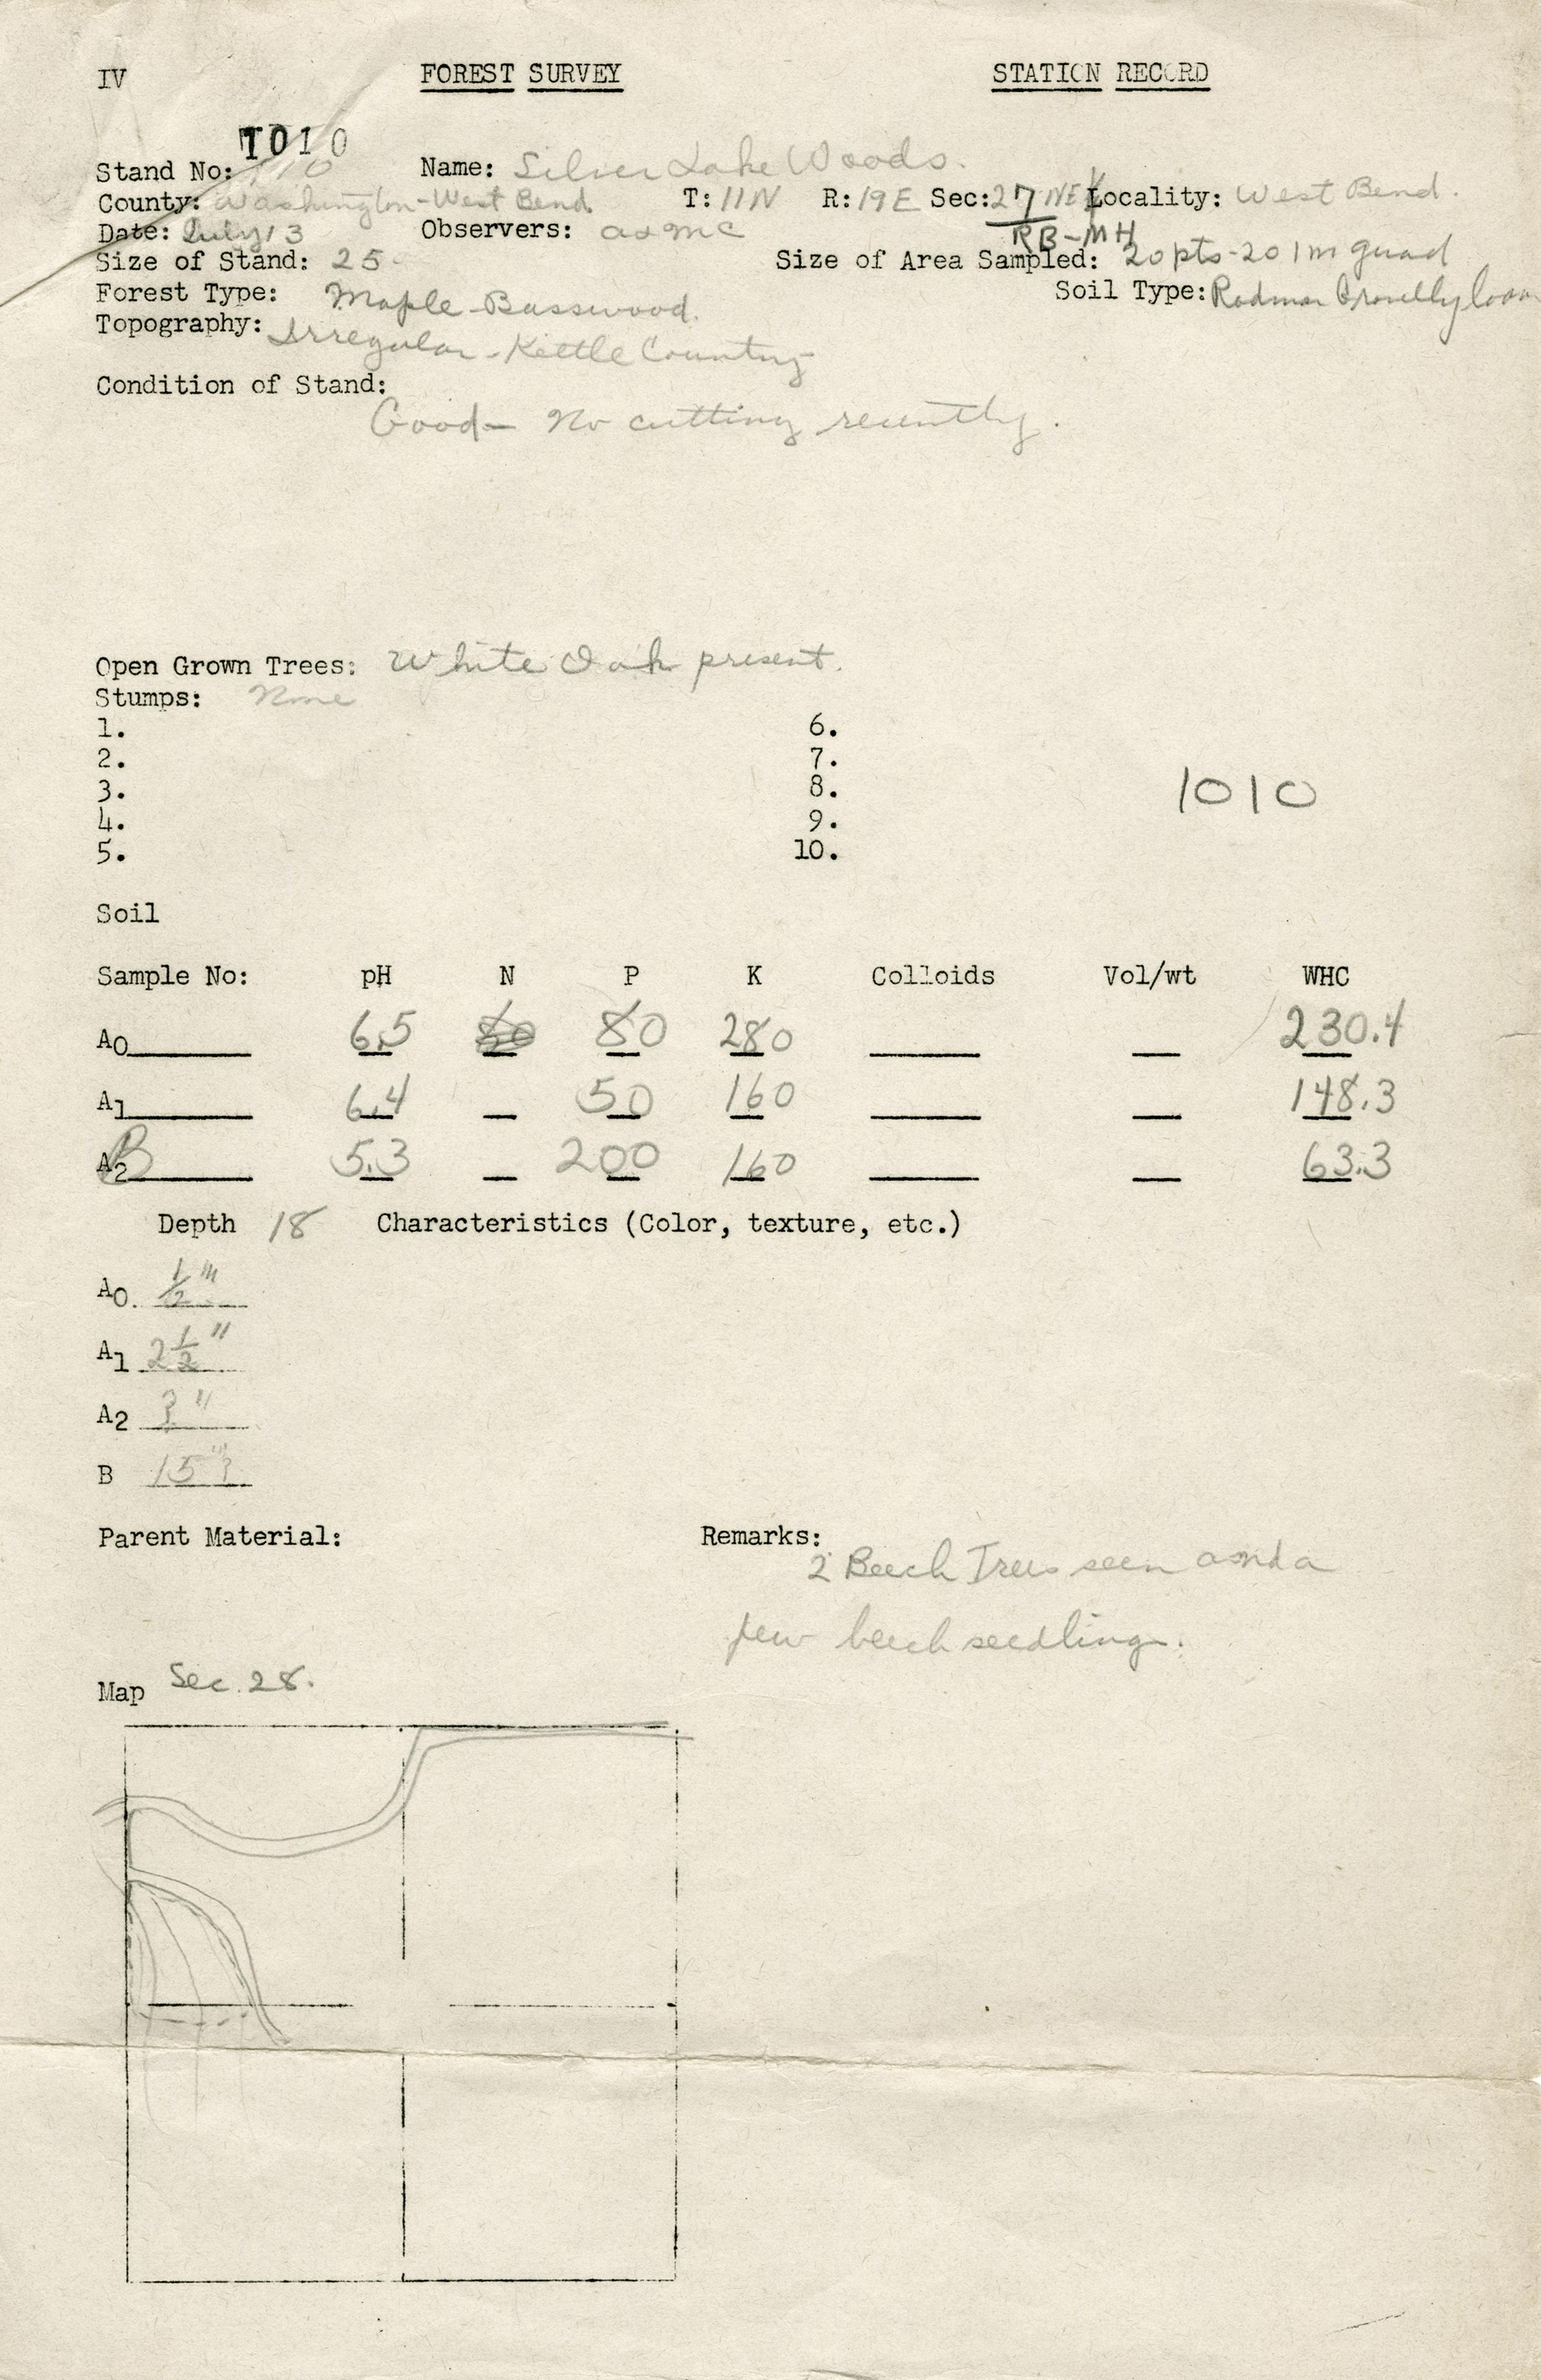 IV FOREST SURVEY STATION RECORD
1010
Stand No: Name: Silver Lake Woods.
County: Washington-West Bend T: 11N R: 19E Sec: 27 NE¼ Locality: West Bend.
Date: July 13 Observers: RB-MH
Size of Stand: 25 Size of Area Sampled: 20 pts-20 1m quad
Forest Type: Maple-Basswood. Soil Type: Rodman Gravelly loam
Topography: Irregular-Kettle Country
Condition of Stand:
Good- No cutting recently.
Open Grown Trees: White Oak present.
Stumps: None
1. 6.
2. 7.
3. 8. 1010
4. 9.
5. 10.
Soil
Sample No: pH N P K Colloids Vol/wt WHC
A0 6.5 80 80 280 230.4
A1 6.4 50 160 148.3
A2 B 5.3 200 160 63.3
Depth 18 Characteristics (Color, texture, etc.)
A0. ½"
A1 2½"
A2 ?"
B 15"?
Parent Material: Remarks:
2 Beech Trees seen and a
few beech seedlings.
Map Sec. 28.